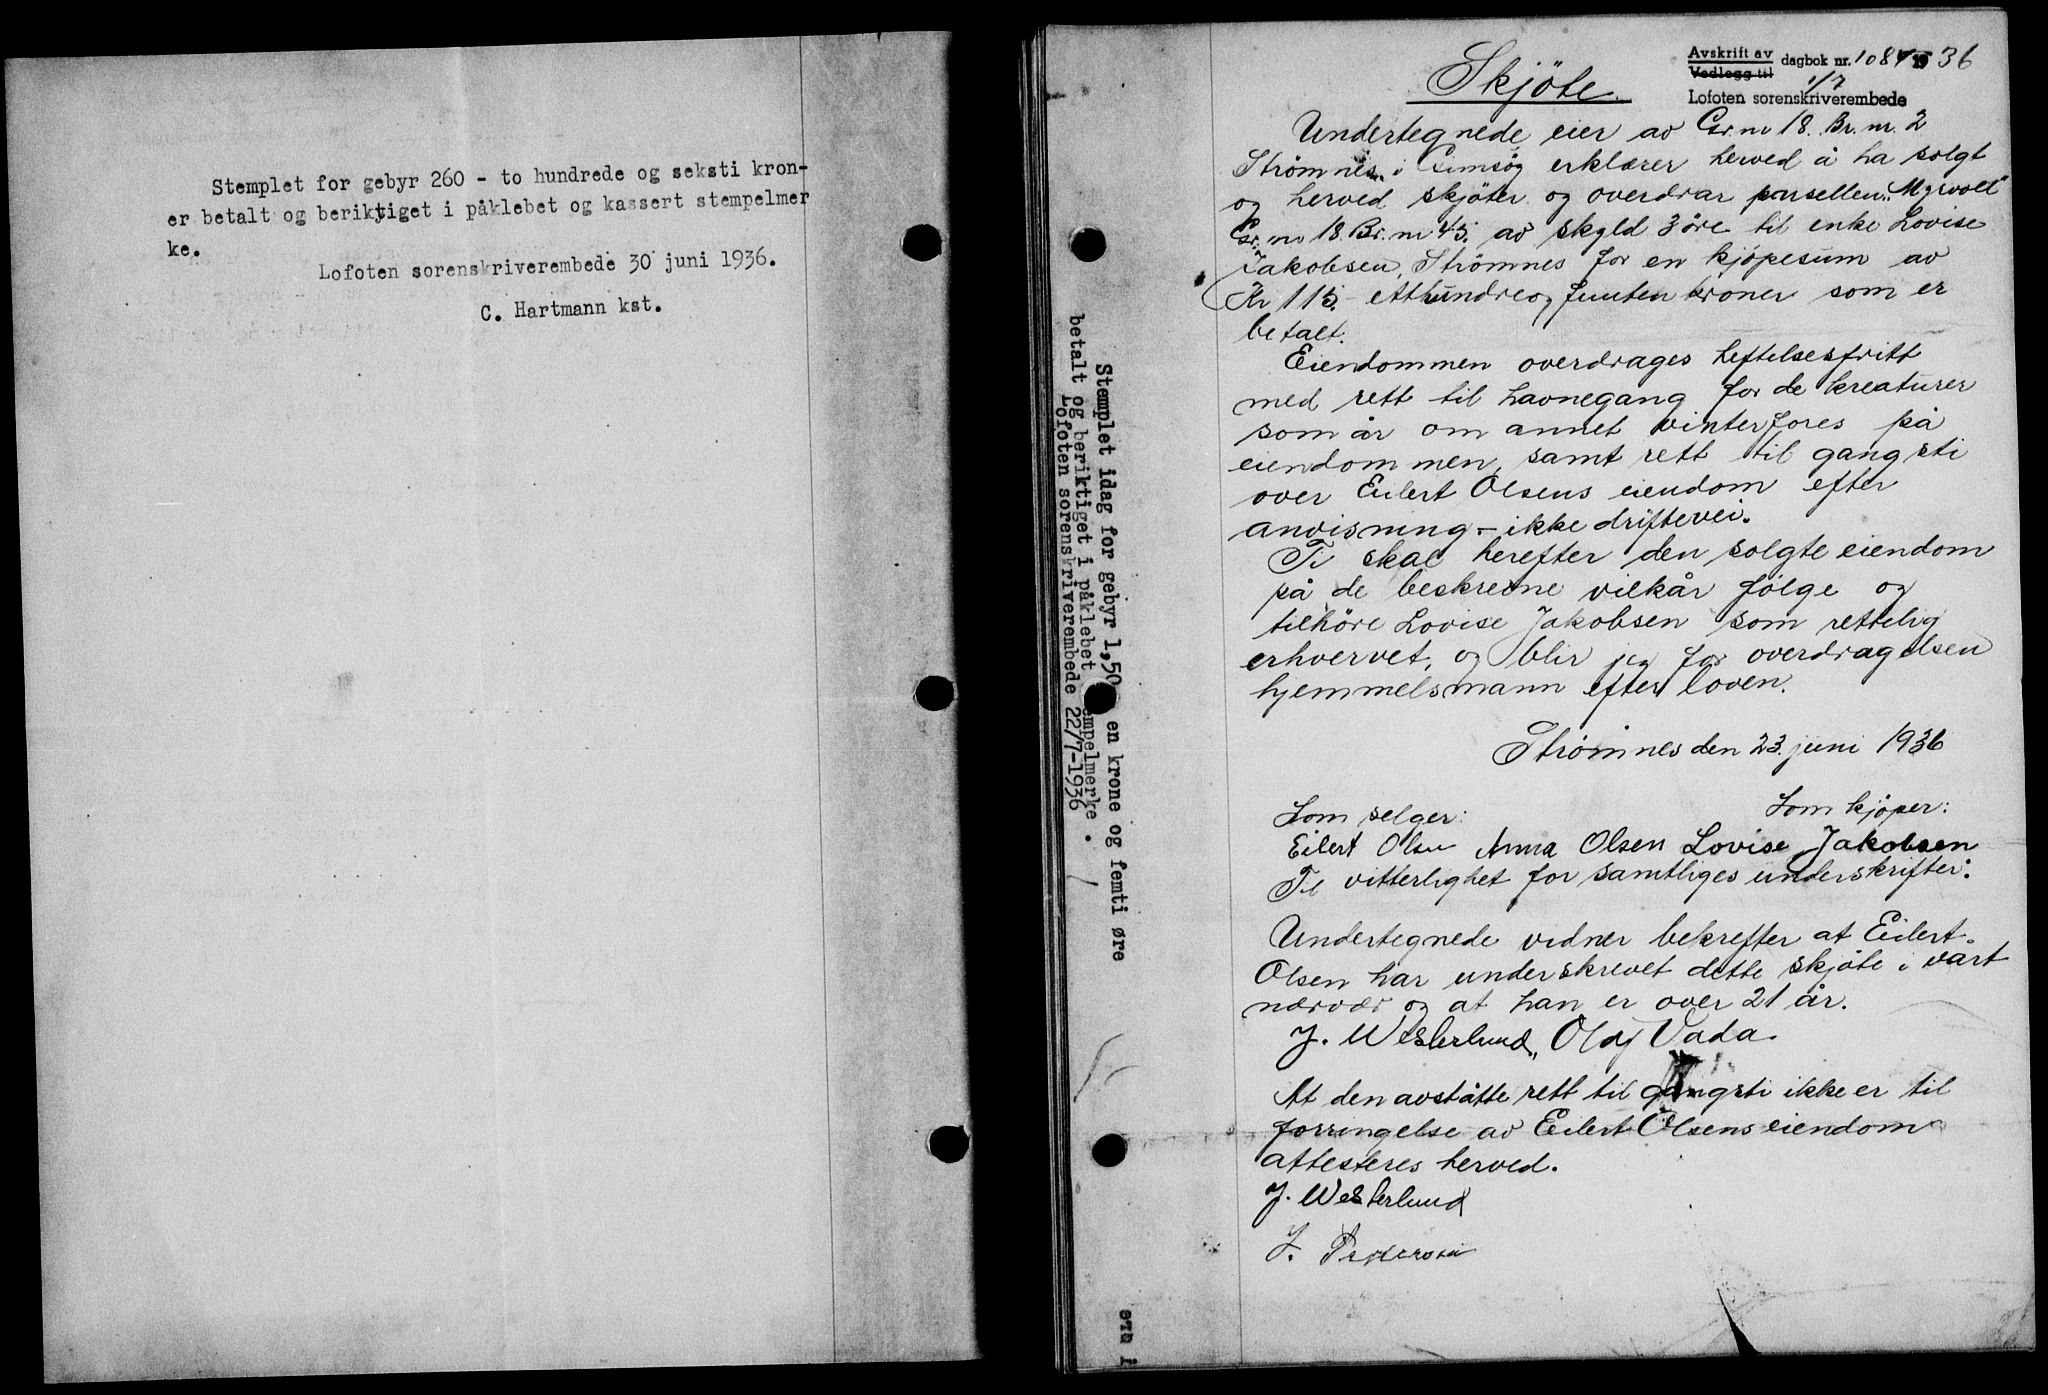 Stemplet for gebyr 260 - to hundrede og seksti kron-
er betalt og beriktiget i påklebet og kassert stempelmer
ke.
Lofoten sorenskriverembede 30 juni 1936.
C. Hartmann kst.
Stemplet idag for gebyr 1,50 en krone og femti øre
betalt og beriktiget i påklebet empelmerke.
Lofoten sorenskriverembede 22/7-1936
Avskrift av
Vedlegg til
dagbok nr. 1084 19 36
1/7
Lofoten sorenskriverembede
Skjöte
Undertegnede eier av Gr. nr 18. Br. nr. 2
Strømnes i Gimsøy erklærer herved å ha solgt
og herved skjöter og overdrar parsellen „Myrvoll"
Gr. nr 18. Br. nr 45. av skyld 3 öre til enke Lovise
Jakobsen, Strömnes for en kjöpesum av
Kr 115.- etthundreog femten kroner som er
betalt.
Eiendommen overdrages heftelsesfritt
med rett til havnegang for de kreaturer
som år om annet vinterfores på
eiendommen, samt rett til gangsti
over Eilert Olsens eiendom efter
anvisning - ikke driftevei.
Ti skal herefter den solgte eiendom
på de beskrevne vilkår fölge og
tilhöre Lovise Jakobsen som rettelig
erhvervet, og blir jeg for overdragelsen
hjemmelsmann efter loven.
Strömnes den 23. juni 1936
Som selger:
Som kjöper:
Eilert Olsen Anna Olsen Lovise Jakobsen
Til vitterlighet for samtliges underskrifter:
Undertegnede vidner bekrefter at Eilert
Olsen har underskrevet dette skjöte i vårt
nærvær og at han er over 21 år.
J. Westerlund, Olaf Vada
At den avståtte rett til gangsti ikke er til
forringelse av Eilert Olsens eiendom
attesteres herved.
J. Westerlund
J. Pedersen